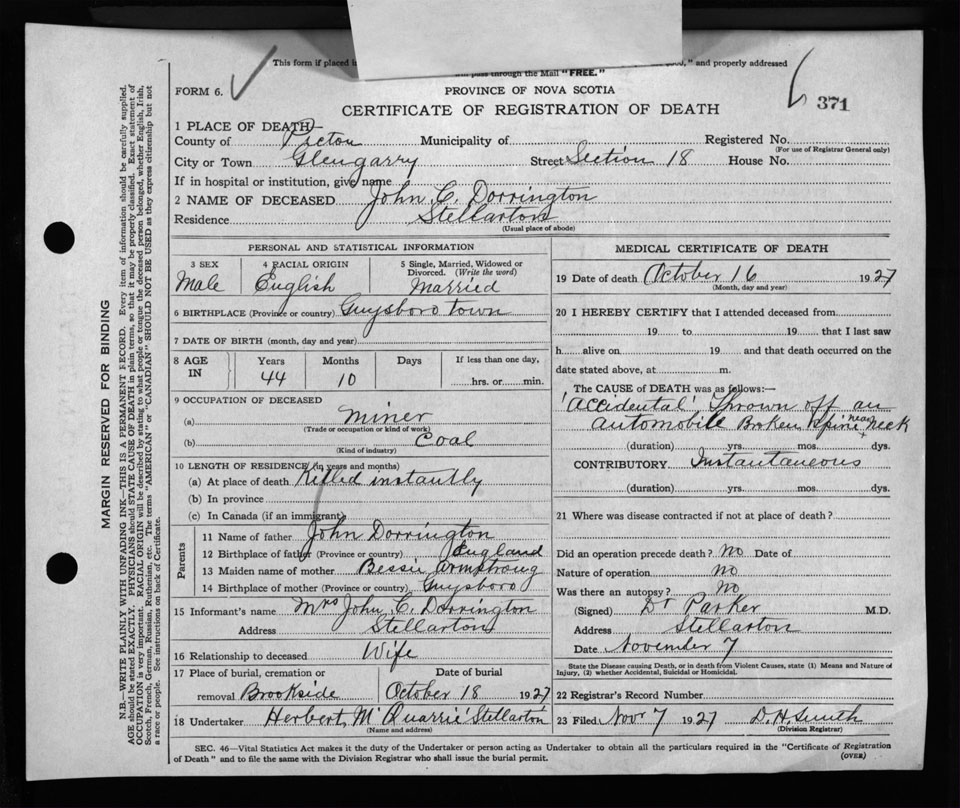 This form if placed i
," and properly addressed
will pass through the Mail "FREE."
FORM 6.
PROVINCE OF NOVA SCOTIA
CERTIFICATE OF REGISTRATION OF DEATH
371
1 PLACE OF DEATH—
County of Pictou Municipality of Registered No.
(For use of Registrar General only)
City or Town Glengarry Street Section 18 House No.
If in hospital or institution, give name
2 NAME OF DECEASED John C. Dorrington
Residence Stellarton
(Usual place of abode)
PERSONAL AND STATISTICAL INFORMATION
3 SEX 4 RACIAL ORIGIN 5 Single, Married, Widowed or
Divorced. (Write the word)
Male English Married
6 BIRTHPLACE (Province or country) Guysboro Town
7 DATE OF BIRTH (month, day and year)
8 AGE IN Years Months Days If less than one day,
44 10 hrs. or min.
9 OCCUPATION OF DECEASED
(a) Miner
(Trade or occupation or kind of work)
(b) Coal
(Kind of industry)
10 LENGTH OF RESIDENCE (in years and months)
(a) At place of death Killed instantly
(b) In province
(c) In Canada (if an immigrant)
Parents
11 Name of father John Dorrington
12 Birthplace of father (Province or country) England
13 Maiden name of mother Bessie Armstrong
14 Birthplace of mother (Province or country) Guysboro
15 Informant's name Mrs John C. Dorrington
Address Stellarton
16 Relationship to deceased Wife
17 Place of burial, cremation or Date of burial
removal Brookside October 18 1927
18 Undertaker Herbert McQuarrie Stellarton
(Name and address)
MEDICAL CERTIFICATE OF DEATH
19 Date of death October 16 1927
(Month, day and year)
20 I HEREBY CERTIFY that I attended deceased from
19 to 19 that I last saw
h alive on 19 and that death occurred on the
date stated above, at m.
The CAUSE of DEATH was as follows:—
'Accidental' Thrown off an
automobile Broken spine near neck
(duration) yrs. mos. dys.
CONTRIBUTORY Instantaneous
(duration) yrs. mos. dys.
21 Where was disease contracted if not at place of death?
Did an operation precede death? No Date of
Nature of operation No
Was there an autopsy? No
(Signed) Dr Parker M.D.
Address Stellarton
Date November 7
State the Disease causing Death, or in death from Violent Causes, state (1) Means and Nature of
Injury, (2) whether Accidental, Suicidal or Homicidal.
22 Registrar's Record Number
23 Filed Novr 7 1927 D. H. Smith
(Division Registrar)
SEC. 46—Vital Statistics Act makes it the duty of the Undertaker or person acting as Undertaker to obtain all the particulars required in the "Certificate of Registration
of Death" and to file the same with the Division Registrar who shall issue the burial permit. (OVER)
MARGIN RESERVED FOR BINDING
N.B.—WRITE PLAINLY WITH UNFADING INK—THIS IS A PERMANENT RECORD. Every item of information should be carefully supplied.
AGE should be stated EXACTLY. PHYSICIANS should STATE CAUSE OF DEATH in plain terms, so that it may be properly classified. Exact statement of
OCCUPATION is very important. RACIAL ORIGIN will be described by stating to what people or tongue the deceased person belonged, whether English, Irish,
Scotch, French, German, Russian, Ruthenian, etc. The terms "AMERICAN" or "CANADIAN" SHOULD NOT BE USED as they express citizenship but not
a race or people. See instructions on back of Certificate.